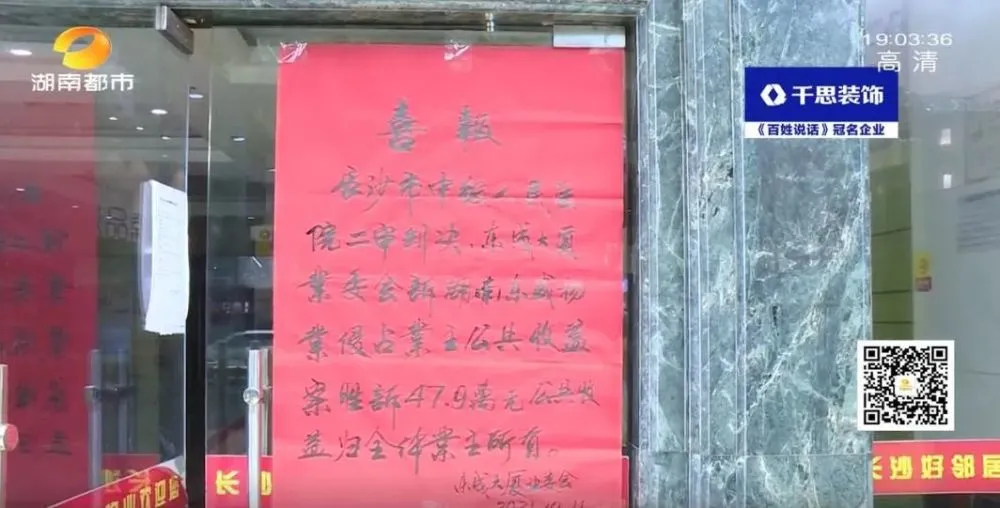 湖南都市
19:03:36
高清
千思装饰
《百姓说话》冠名企业
喜報
長沙市中级人民法
院二审判决,东成大厦
業委会訴湖南东成物
業侵占業主公共收益
案胜訴47.9萬元公共收
益归全体業主所有。
东成大厦业委会
长沙
长沙好邻居